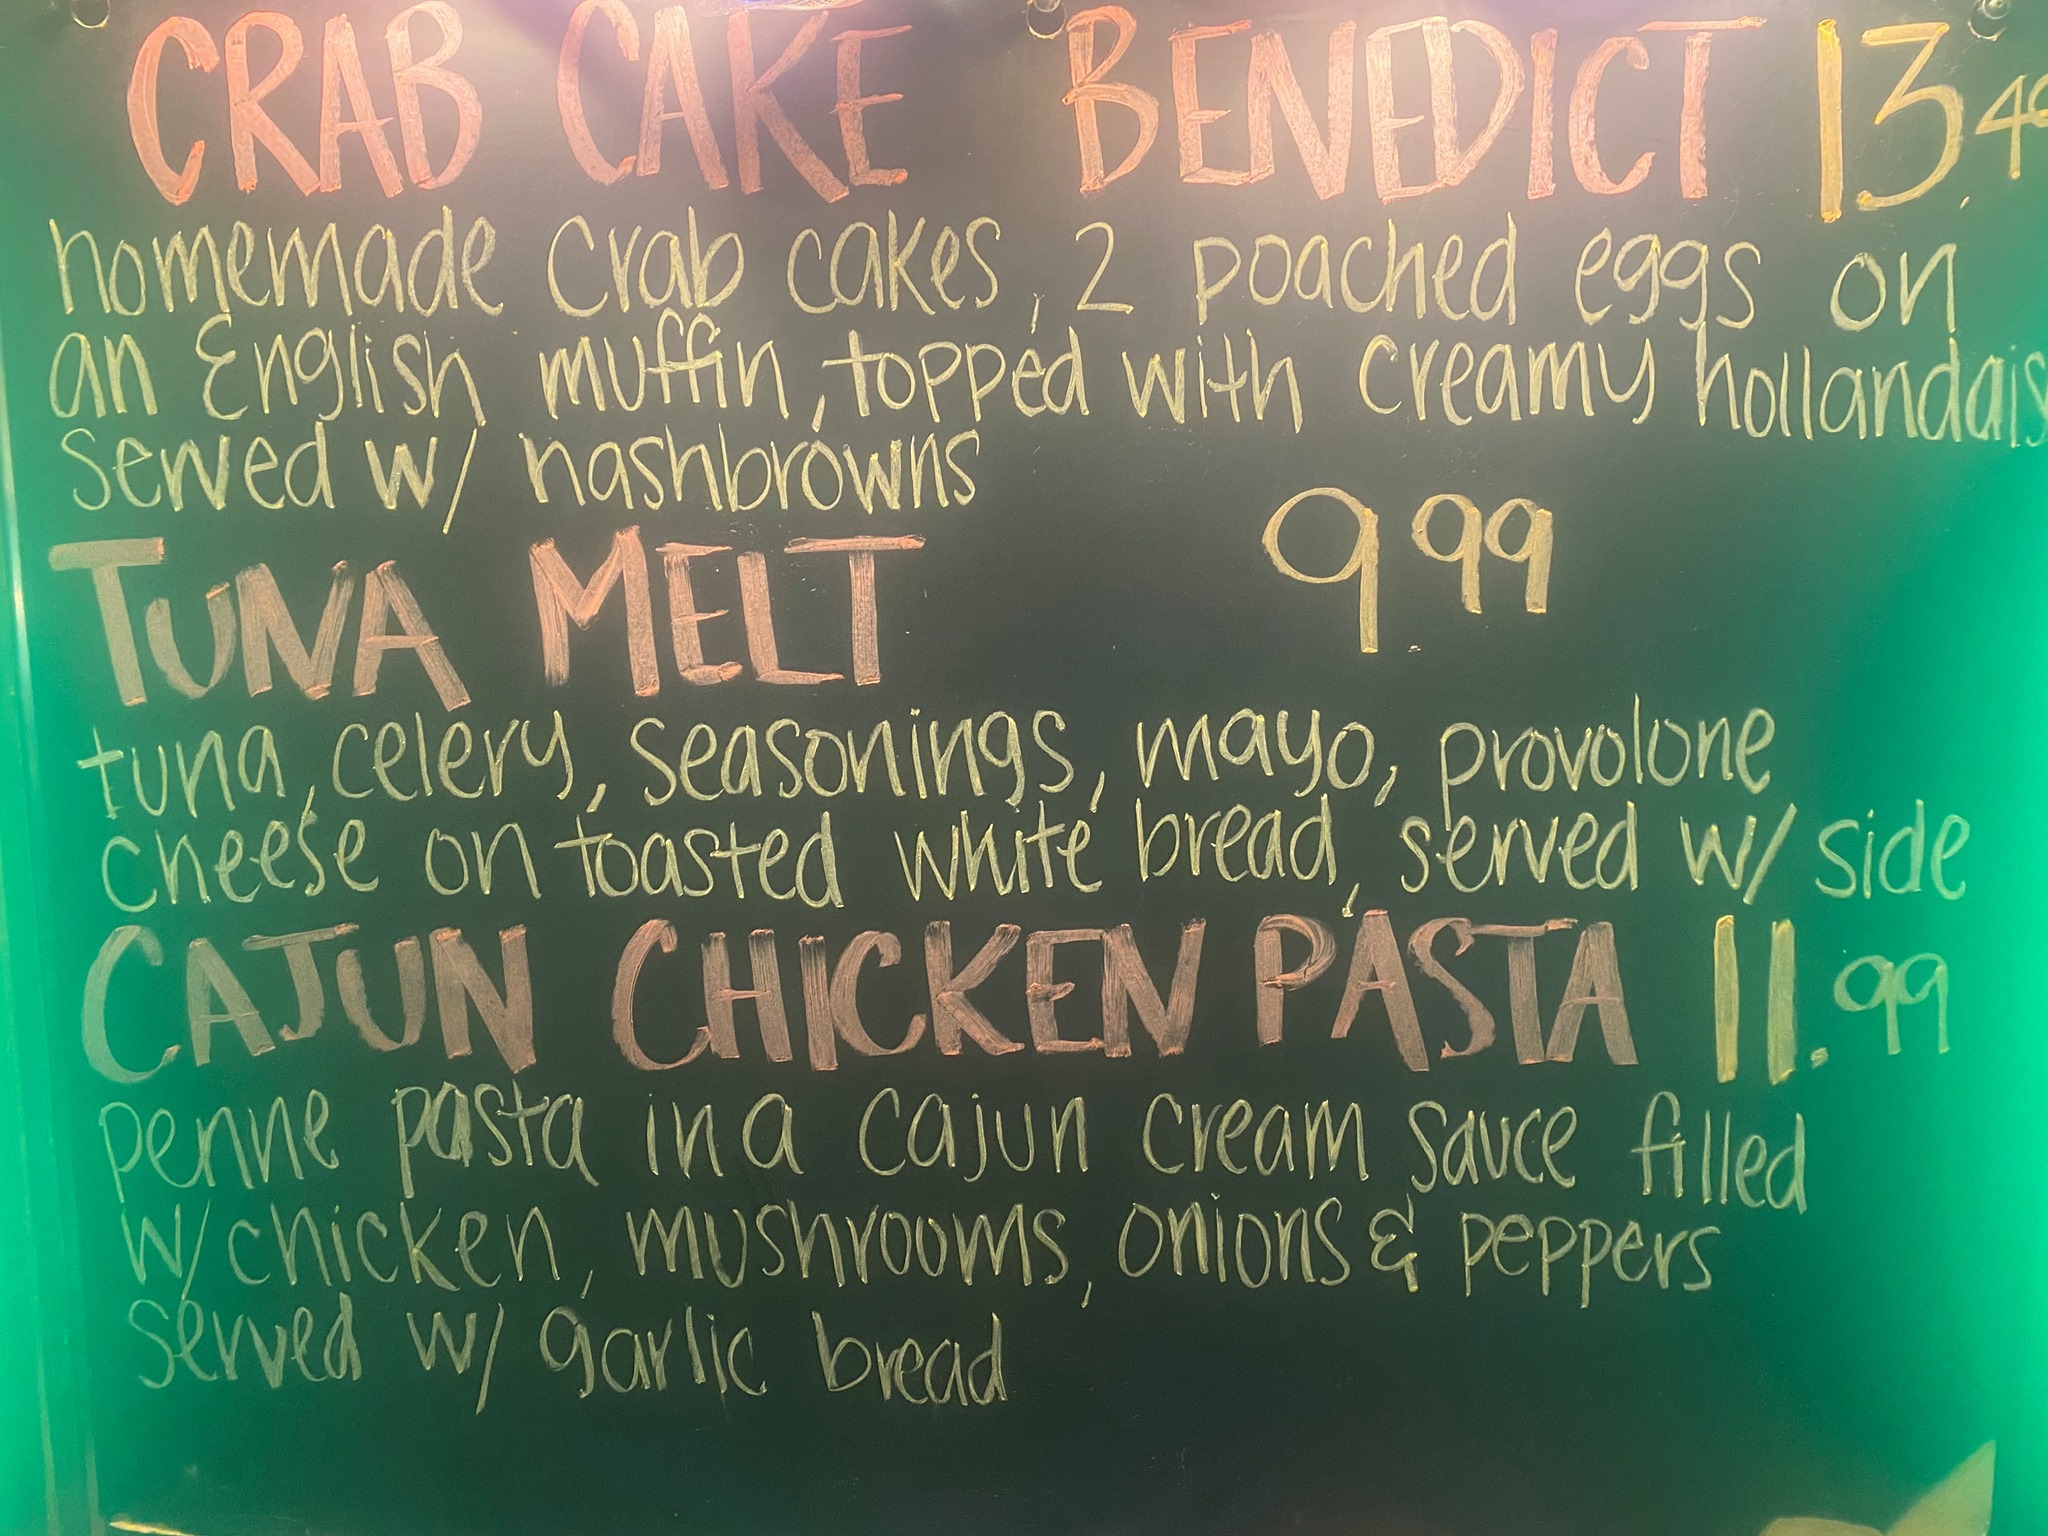 CRAB CAKE BENEDICT 13.
homemade crab cakes, 2 poached eggs on
an English muffin, topped with creamy hollandais
served w/ hashbrowns
TUNA MELT 9.99
tuna, celery, seasonings, mayo, provolone
cheese on toasted white bread, served w/ side
CAJUN CHICKEN PASTA 11.99
penne pasta in a cajun cream sauce filled
w/ chicken, mushrooms, onions & peppers
served w/ garlic bread